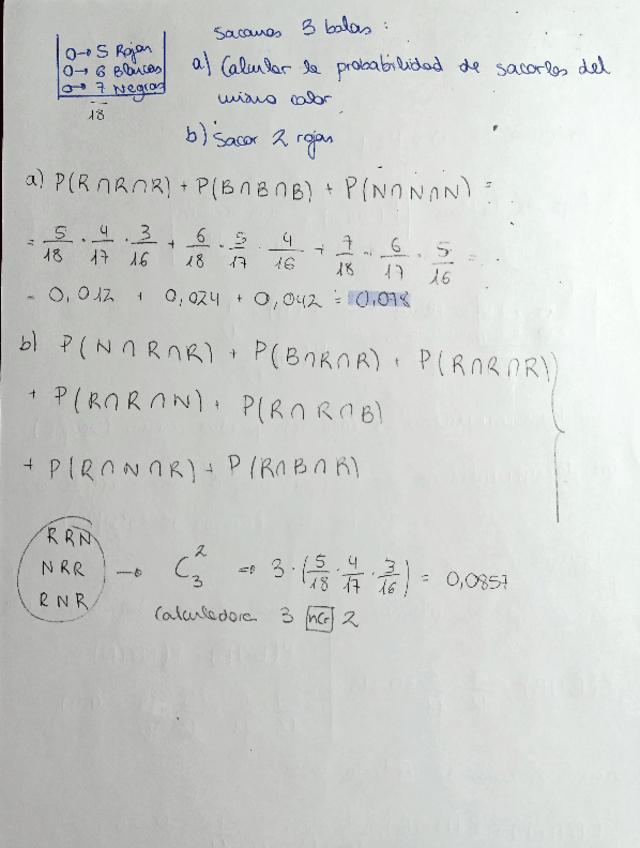 Sacamos 3 bolas:
O→ 5 Rojas
O→ 6 Blancas
O→ 7 Negras
18
a) Calcular la probabilidad de sacarlas del
mismo color
b) Sacar 2 rojas
a) P(R∩R∩R) + P(B∩B∩B) + P(N∩N∩N) =
= 5/18 · 4/17 · 3/16 + 6/18 · 5/17 · 4/16 + 7/18 · 6/17 · 5/16 =
= 0,012 + 0,024 + 0,042 = 0,078
b) P(N∩R∩R) + P(B∩R∩R) + P(R∩R∩R)
+ P(R∩R∩N) + P(R∩R∩B)
+ P(R∩N∩R) + P(R∩B∩R)
RRN
NRR → C₃² => 3 · (5/18 · 4/17 · 3/16) = 0,0857
RNR
Calculadora 3 nCr 2